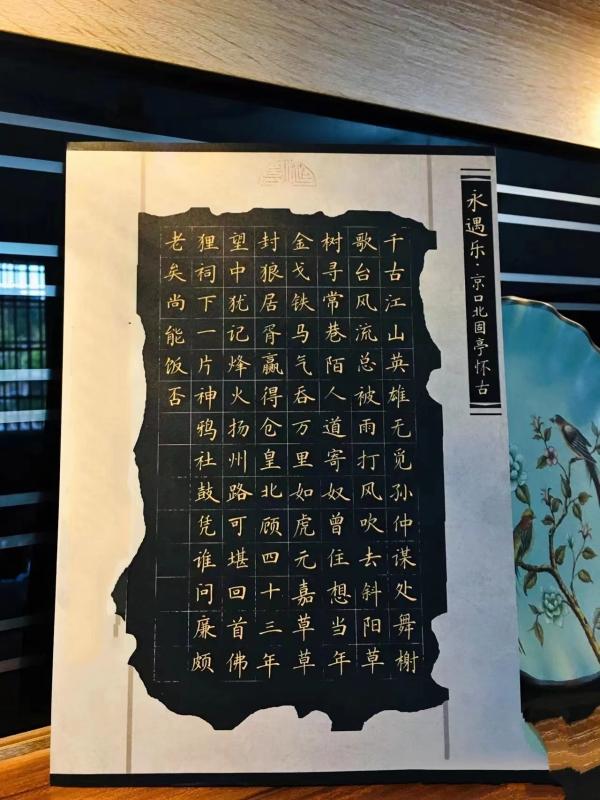 永遇乐·京口北固亭怀古
千古江山英雄无觅孙仲谋处舞榭
歌台风流总被雨打风吹去斜阳草
树寻常巷陌人道寄奴曾住想当年
金戈铁马气吞万里如虎元嘉草草
封狼居胥赢得仓皇北顾四十三年
望中犹记烽火扬州路可堪回首佛
狸祠下一片神鸦社鼓凭谁问廉颇
老矣尚能饭否